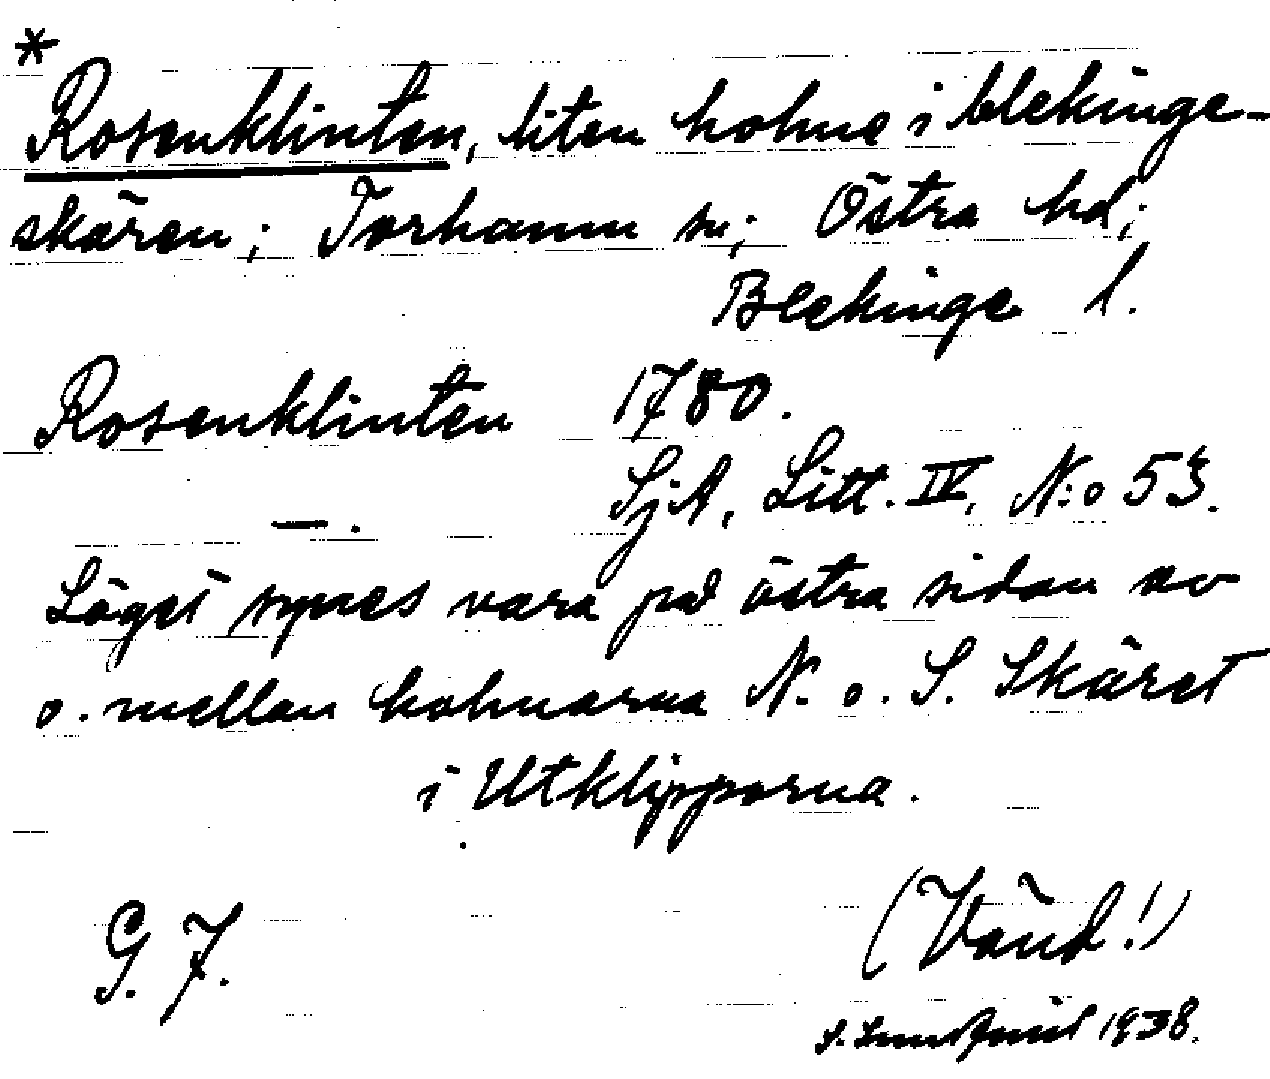 *
Rosenklinten, liten holme i blekinge-
skären; Torhamn sn; Östra hd;
Blekinge l.
Rosenklinten 1780.
SjA, Litt. IV, N:o 53.
— .
Läget synes vara på östra sidan av
o. mellan holmarna N. o. S. Skäret
i Utklipporna.
(Vänd!)
G. F.
S. 1938.